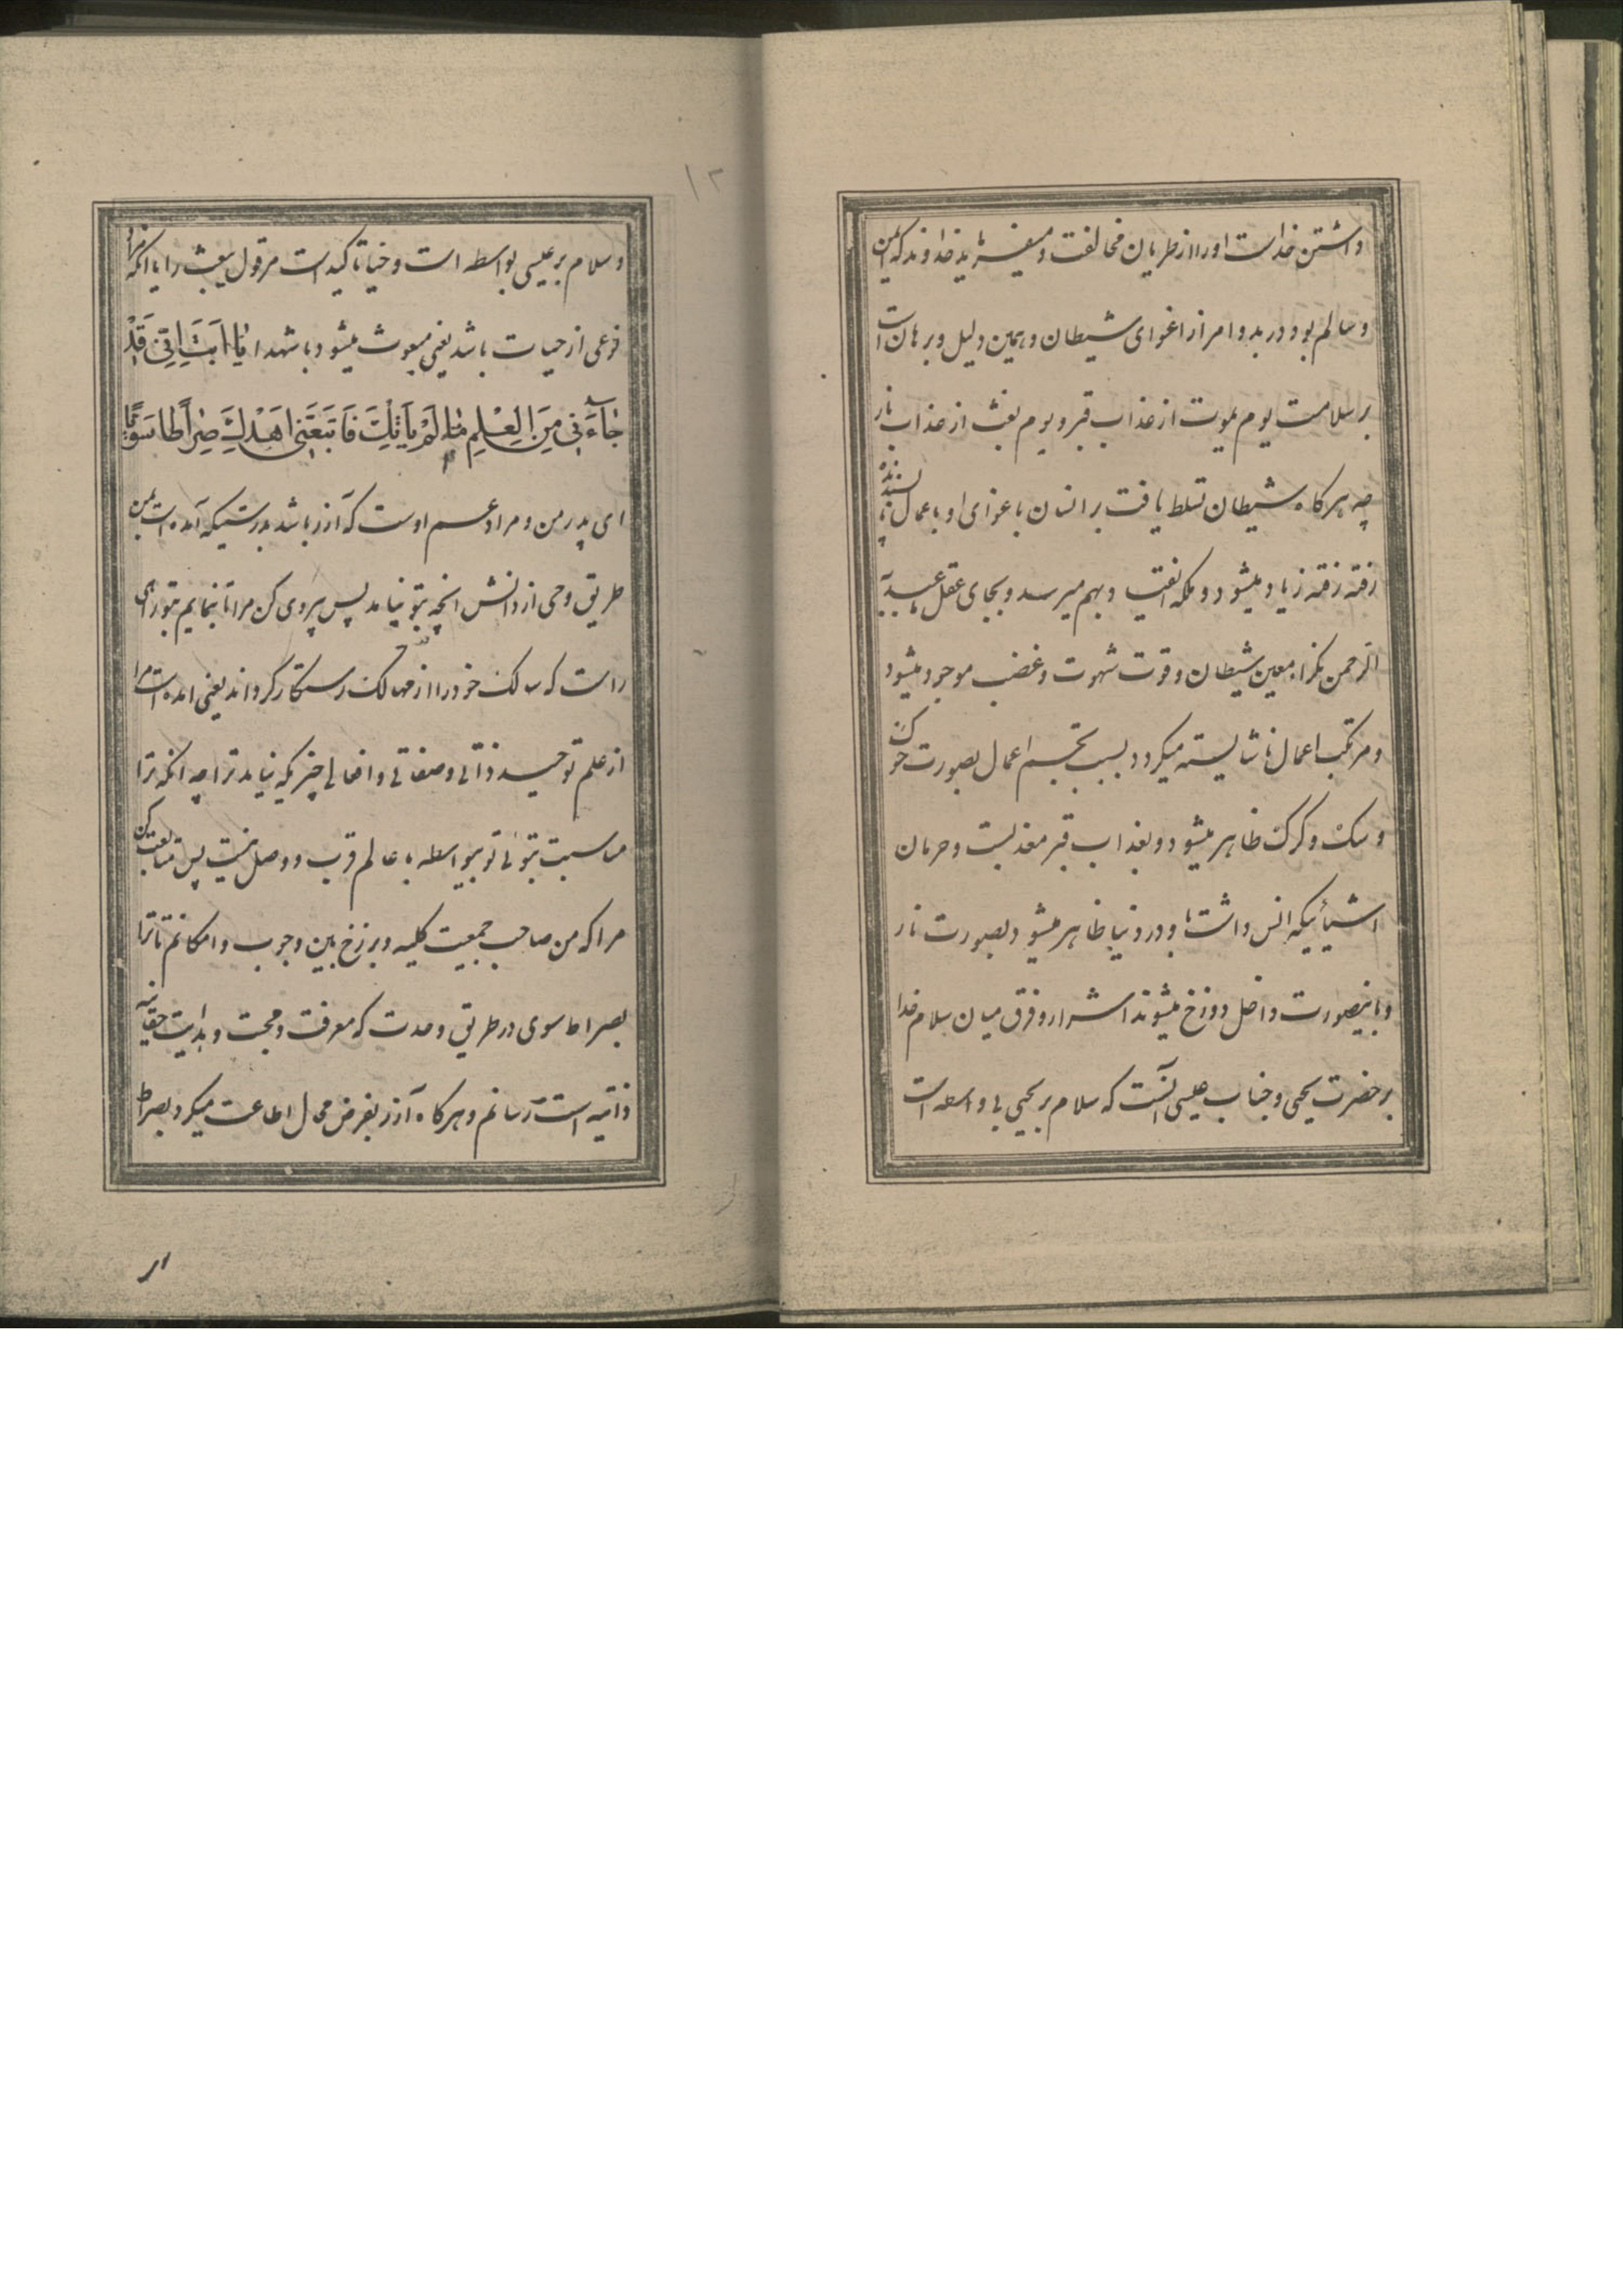 داشتن خداست اورا از طریان مخالفت و میفرماید خداوند که ایمن
و سالم بود در بدو امر از اغوای شیطان و همین دلیل و برهان است
بر سلامت یوم یموت از عذاب قبر و یوم بعث از عذاب نار
چه هرکاه شیطان تسلط یافت بر انسان باغوای او باعمال ناپسندیده
رفته رفته زیاد میشود و ملکه نفس بهم میرسد و بجای عقل
الرحمن نکرا معین شیطان و قوت شهوت و غضب موجود میشود
و مرتکب اعمال ناشایسته میکردد بسبب تجسم اعمال بصورت خوک
و سک و کرک ظاهر میشود و بعذاب قبر معذبست و حرمان
اشیائیکه انس داشت باو در دنیا ظاهر میشود بصورت نار
و باینصورت داخل دوزخ میشوند اشرار و فرق میان سلام خدا
بر حضرت یحیی و جناب عیسی آنست که سلام بر یحیی بی واسطه است
۱۲
و سلام بر عیسی بواسطه است و حیا تاکید است مر قول یبعث را یا آنکه مراد
نوعی از حیات باشد یعنی مبعوث میشود با شهدا یٰا اَبَتِ اِنّی قَدْ
جٰآءَنی مِنَ الْعِلْمِ مٰا لَمْ یَاْتِکَ فَاتَّبِعْنی اَهْدِکَ صِرٰاطاً سَوِیًّا
ای پدر من و مراد عم اوست که آزر باشد بدرستیکه آمده است بمن
طریق وحی از دانش انچه بتو نیامد پس پیروی کن مرا تا بنمایم بتو راهی
راست که سالک خود را از مهالک رستکار کرداند یعنی آمده است مرا
از علم توحید ذاتی و صفاتی و افعالی چیزیکه نیامد ترا چه آنکه ترا
مناسبت بتوئی تو بیواسطه با عالم قرب و وصل نیست پس متابعت کن
مرا که من صاحب جمعیت کلیه و برزخ بین وجوب و امکانم تا ترا
بصراط سوی در طریق وحدت که معرفت و محبت و هدایت حقانیه
ذاتیه است رسانم و هرکاه آزر بفرض محال اطاعت میکرد بصراط